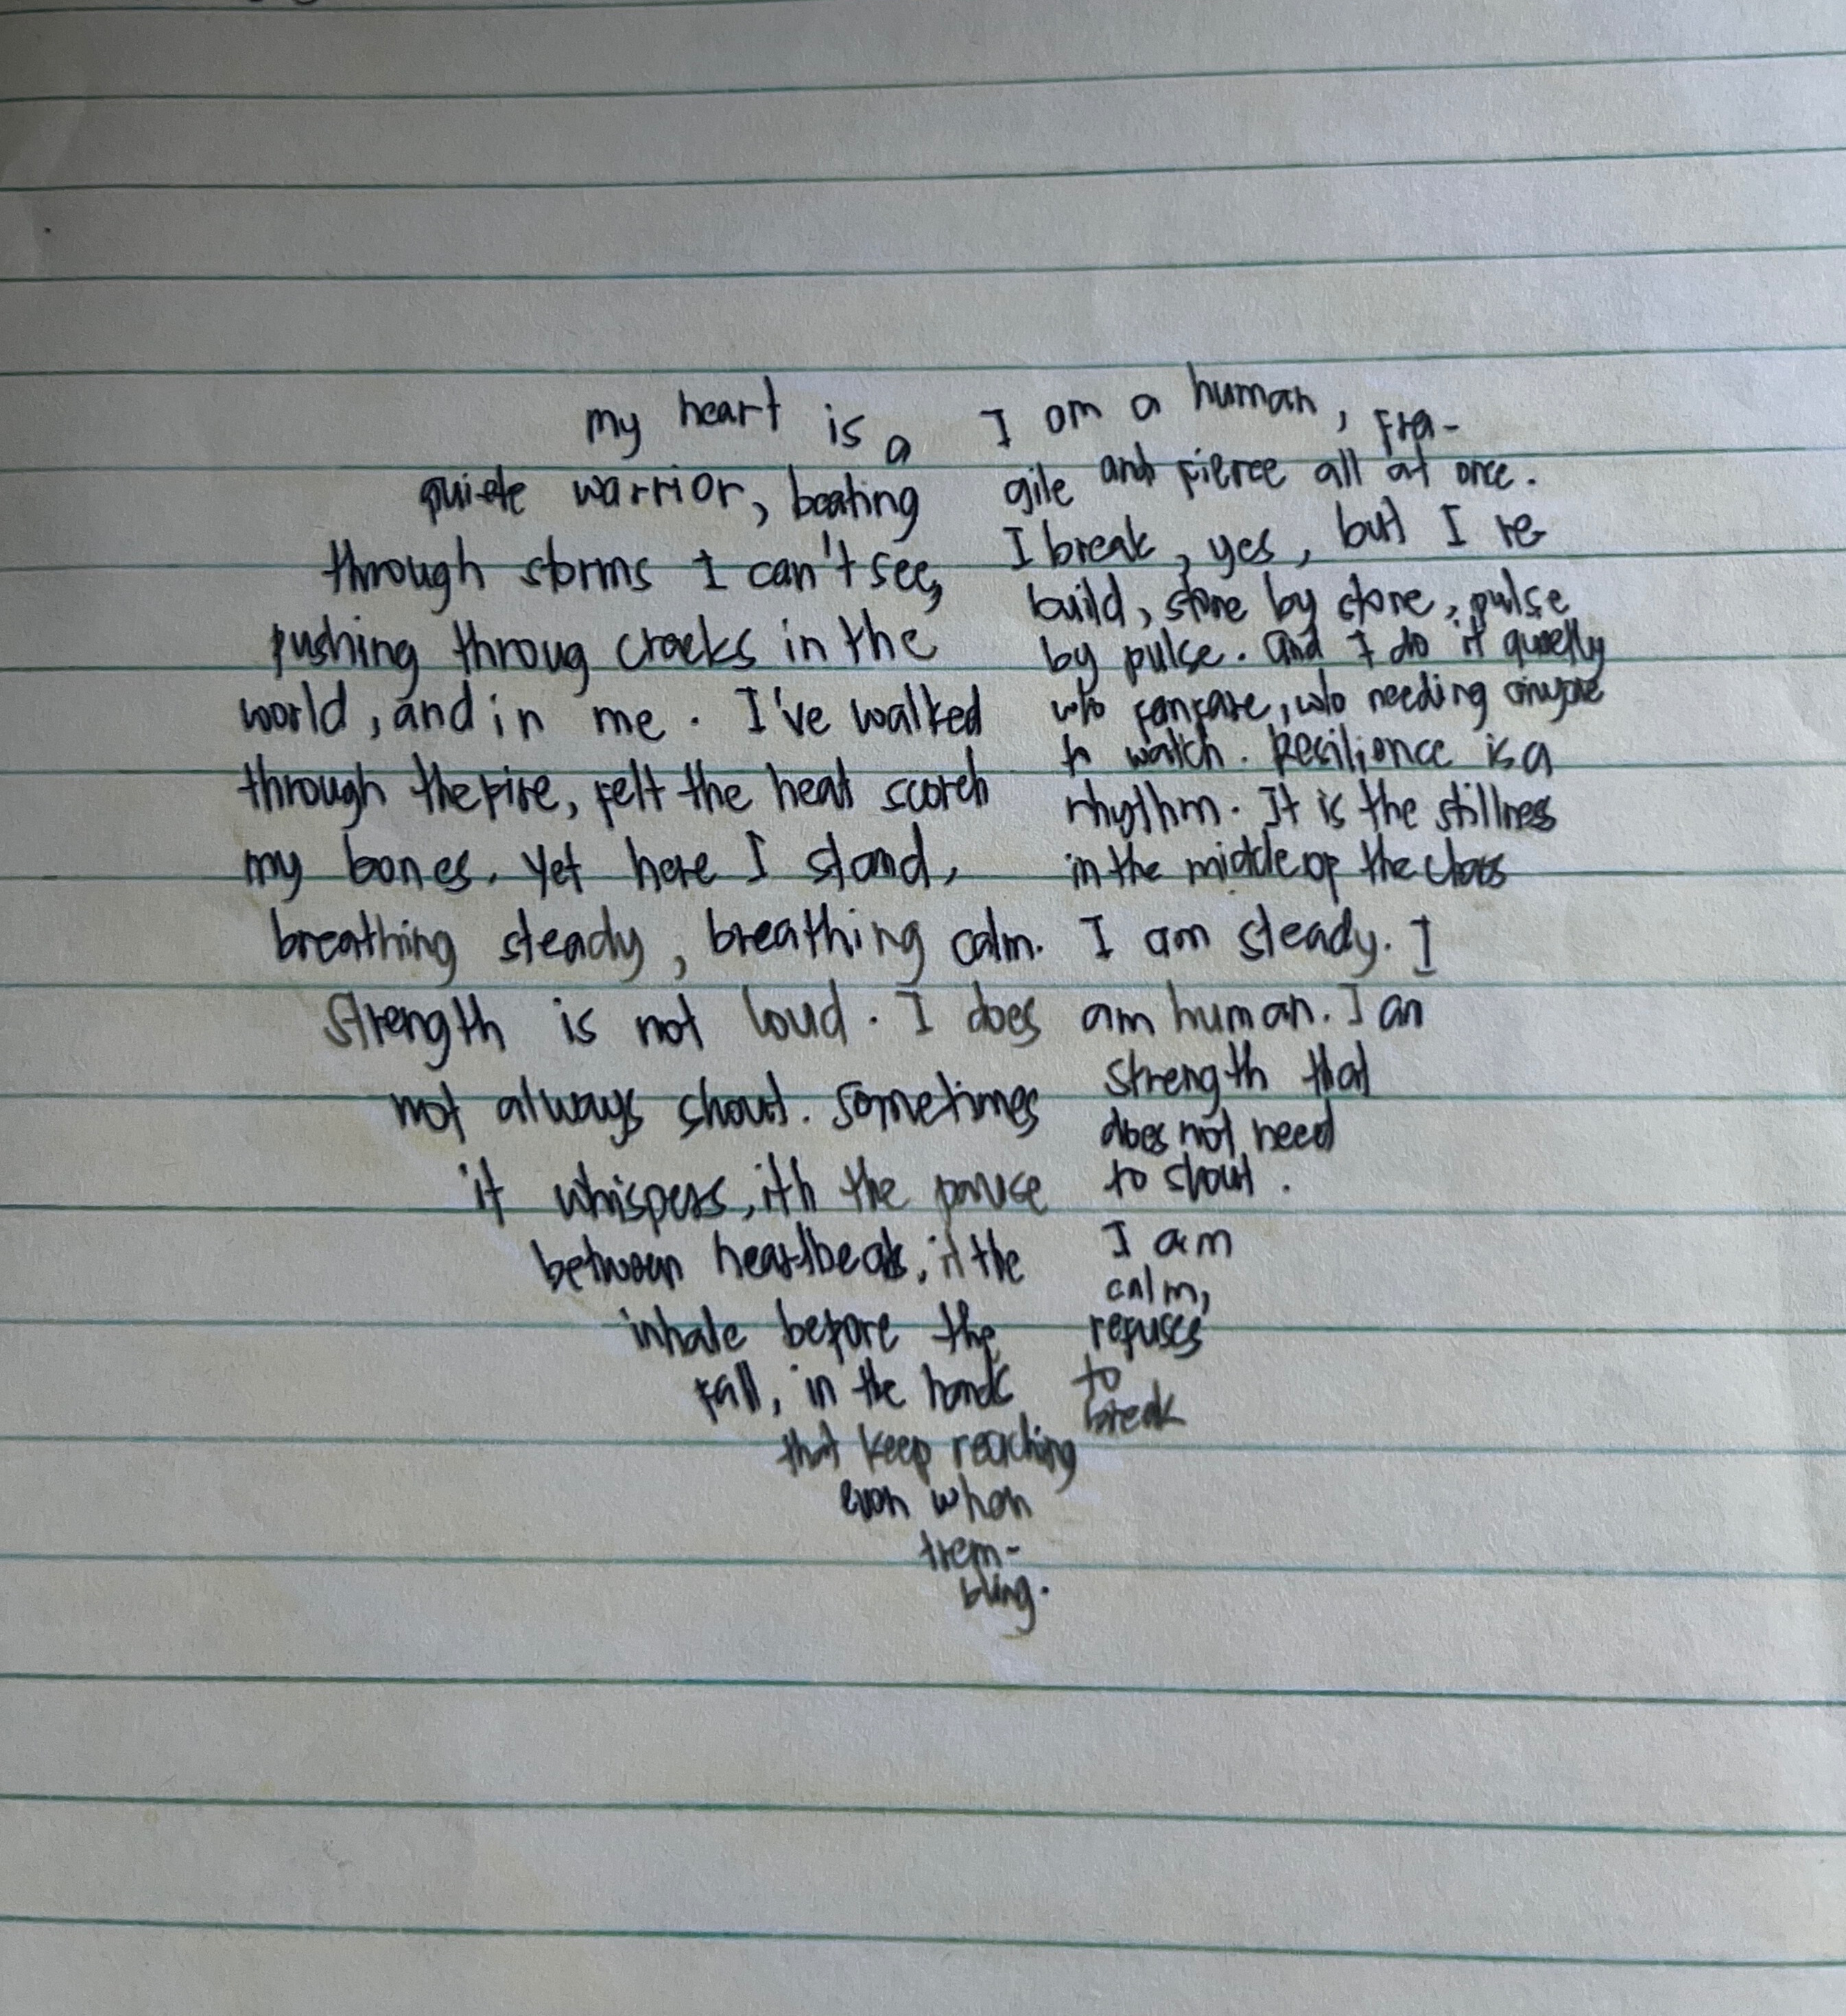 my heart is a
quiete warrior, beating
through storms I can't see,
pushing throug cracks in the
world, and in me. I've walked
through the fire, felt the heat scorch
my bones. Yet here I stand,
breathing steady, breathing calm.
Strength is not loud. I does
not always shout. Sometimes
it whispers, ith the pause
between heartbeats, it the
inhale before the
fall, in the hands
that keep reaching
even when
trem-
bling.
I am a human, fra-
gile and fierce all at once.
I break, yes, but I re-
build, stone by stone, pulse
by pulse. and I do it quietly
w/o fanfare, w/o needing anyone
to watch. Resilience is a
rhythm. It is the stillness
in the middle of the chaos
I am steady. I
am human. I am
strength that
does not need
to shout.
I am
calm,
refuses
to
break